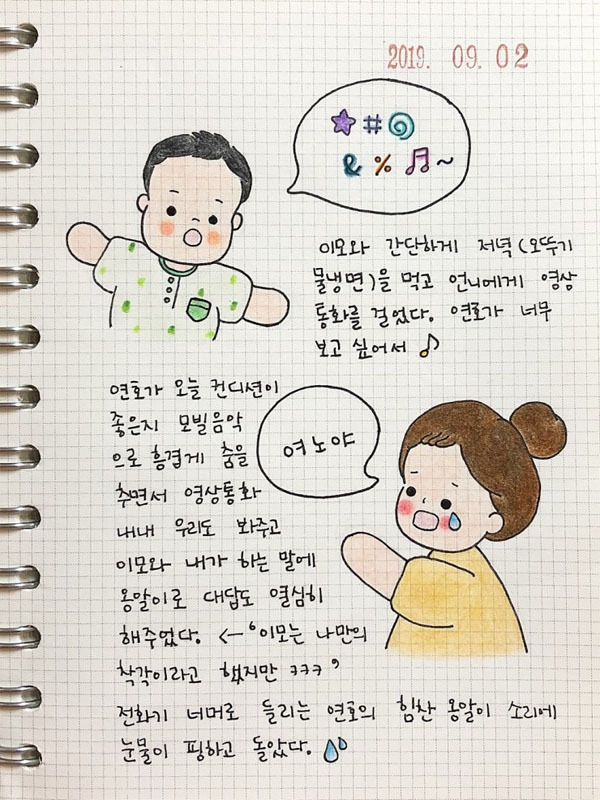 2019. 09. 02
★#@
& % ♬~
이모와 간단하게 저녁(오뚜기
물냉면)을 먹고 언니에게 영상
통화를 걸었다. 연호가 너무
보고 싶어서 ♪
연호가 오늘 컨디션이
좋은지 모빌음악
으로 흥겹게 춤을
추면서 영상통화
내내 우리도 봐주고
이모와 내가 하는 말에
옹알이로 대답도 열심히
해주었다. ← ‘이모는 나만의
착각이라고 했지만 ㅋㅋㅋ’
전화기 너머로 들리는 연호의 힘찬 옹알이 소리에
눈물이 핑하고 돌았다.
여노야